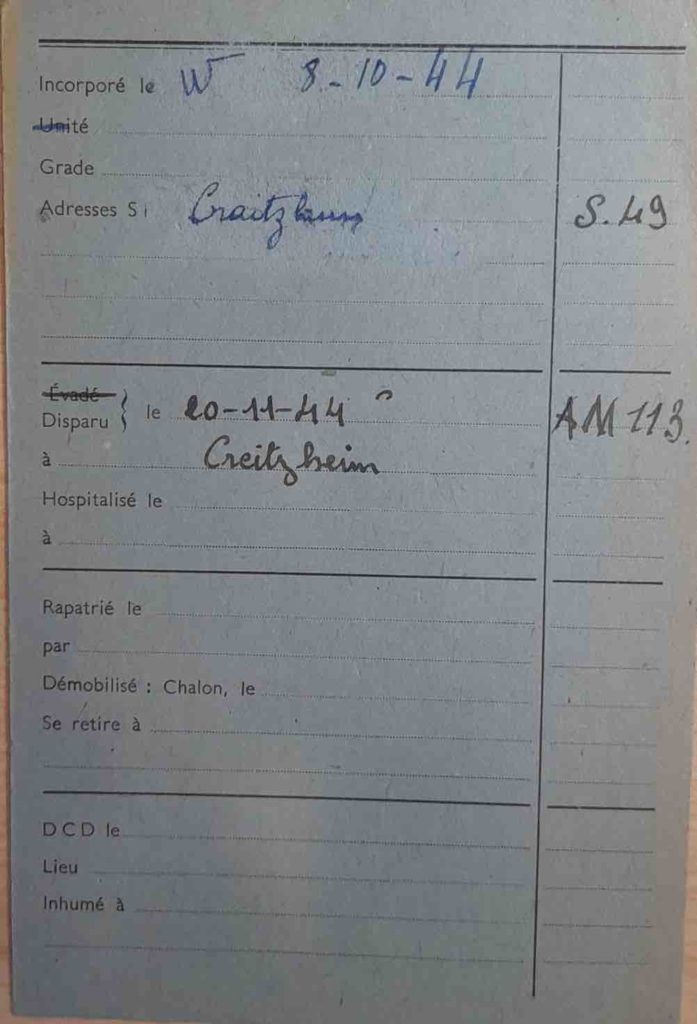 Incorporé le W 8-10-44
Unité
Grade
Adresses S: Craitzheim S.49
Évadé
Disparu } le 20-11-44 AM 113.
à Creitzheim
Hospitalisé le
à
Rapatrié le
par
Démobilisé : Chalon, le
Se retire à
DCD le
Lieu
Inhumé à